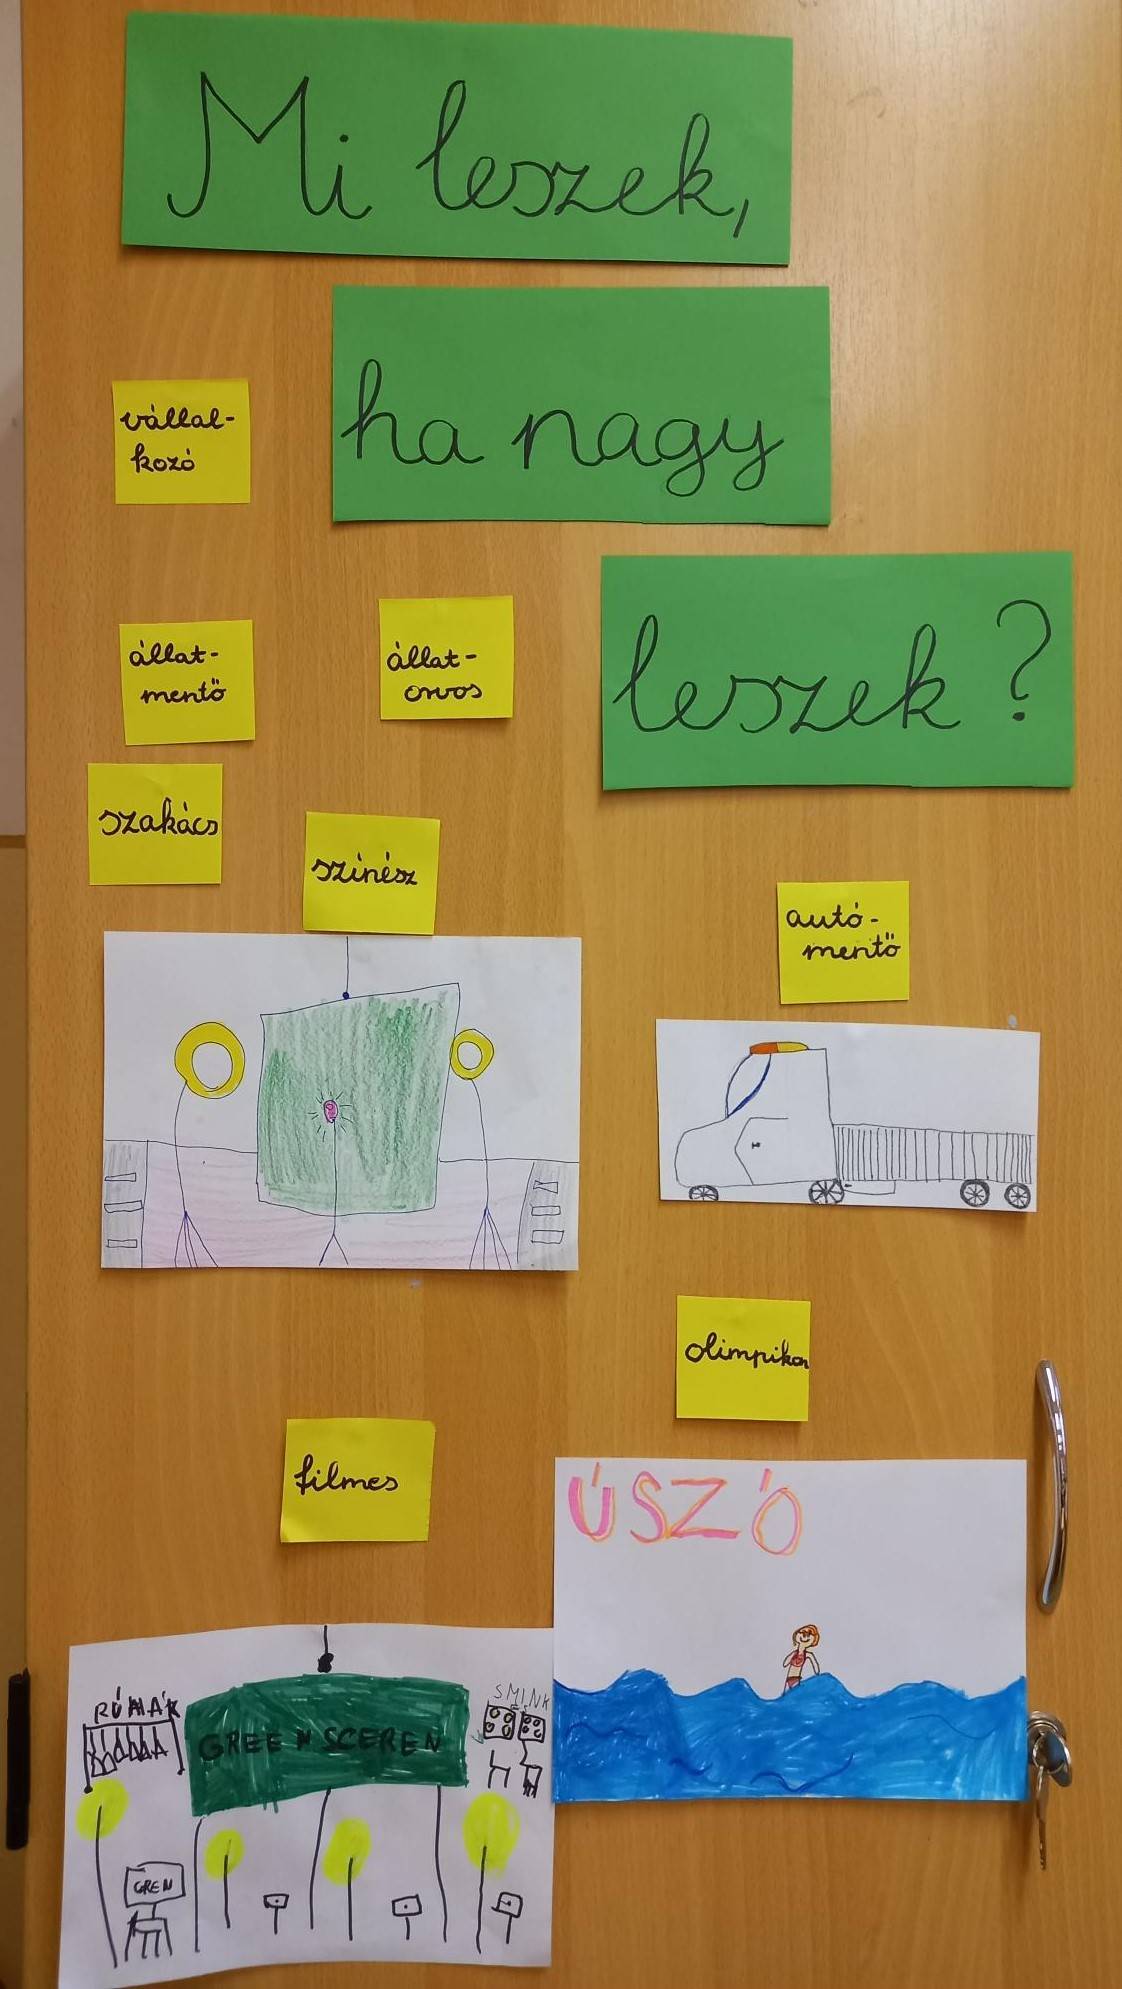 Mi leszek,
ha nagy
leszek?
vállal-
kozó
állat-
mentő
állat-
orvos
szakács
színész
autó-
mentő
olimpikon
filmes
ÚSZÓ
RÚHÁK
GREEN SCEREN
SMINK
GREN